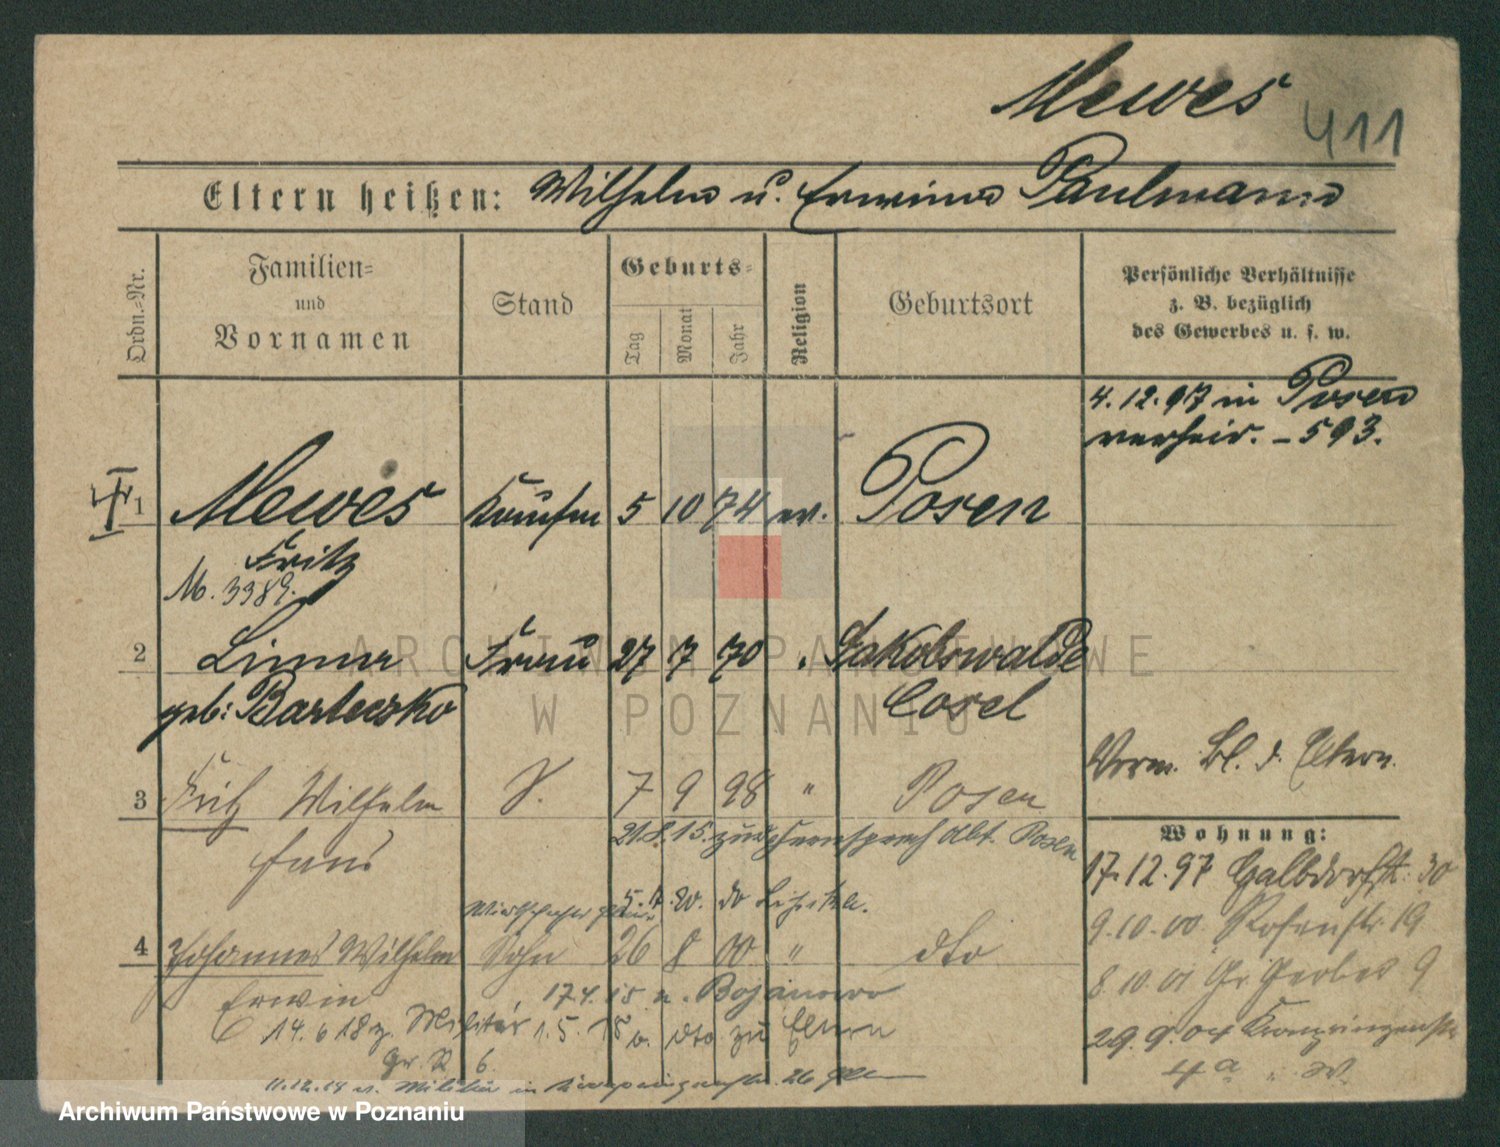 Mewes
411
Eltern heißen: Wilhelm u. Erwine Paulmann
Ordn.-Nr.
Familien-
und
Vornamen
Stand
Geburts-
Tag
Monat
Jahr
Religion
Geburtsort
Persönliche Verhältnisse
z. B. bezüglich
des Gewerbes u. s. w.
4.12.97 in Posen
verheir. - 593.
1 Mewes Kaufm 5 10 74 ev. Posen
Fritz
M. 3389.
2 Frau 27 7 70 Jakobswalde
geb: Bartecko Cosel
Verm. Bl. d. Eltern.
3 Fritz Wilhelm S. 7 9 98 " Posen
Hans
21.8.15. zur Fernsprech Abt. Posen
Wohnung:
17.12.97 Halbdorfstr. 30
5.7.20.
9.10.00 Rosenstr. 19
4 Johannes Wilhelm Sohn 26 8 00 " dto
8.10.01 Gr Gerber 9
Erwin
17.4.15 n. Bojanowo
14.6.18 z. Militär 1.5.15 v. dto zu Eltern
29.9.04 Kronprinzenstr
4a
Gr. R 6.
11.12.18 v. Militär in Kronprinzenstr. 26
ARCHIWUM PAŃSTWOWE
W POZNANIU
Archiwum Państwowe w Poznaniu